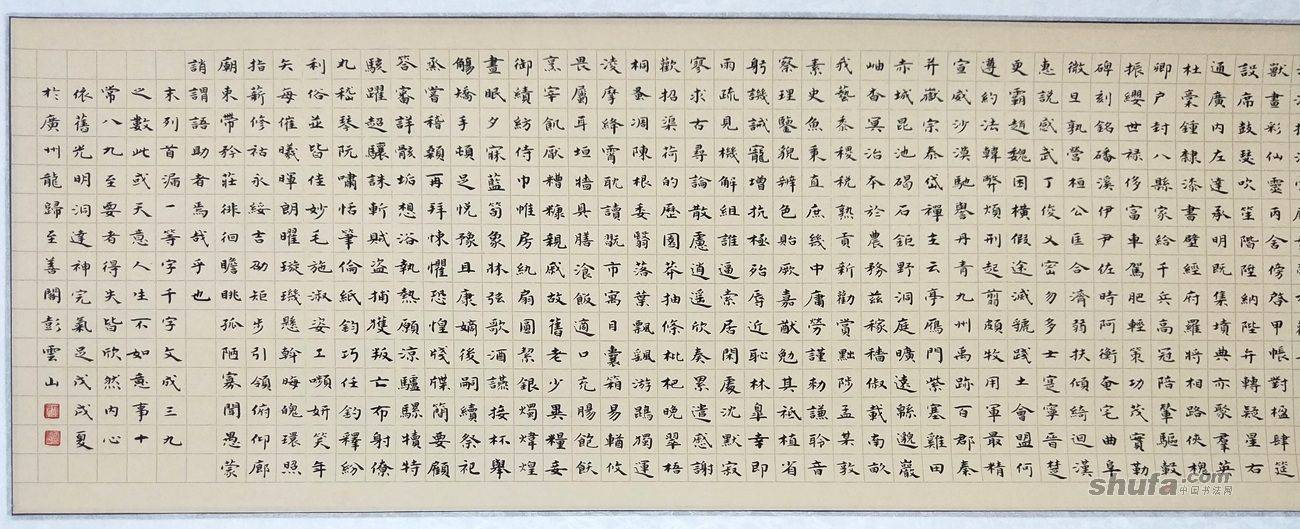 獸畫彩仙靈丙舍傍啓甲帳對楹肆筵
設席鼓瑟吹笙階陞納陛弁轉疑星右
通廣內左達承明既集墳典亦聚羣英
杜稾鍾隸漆書壁經府羅將相路俠槐
卿户封八縣家給千兵高冠陪輦驅轂
振纓世禄侈富車駕肥輕策功茂實勒
碑刻銘磻溪伊尹佐時阿衡奄宅曲阜
微旦孰營桓公匡合濟弱扶傾綺迴漢
惠說感武丁俊乂密勿多士寔寧晉楚
更霸趙魏困橫假途滅虢踐土會盟何
遵約法韓弊煩刑起翦頗牧用軍最精
宣威沙漠馳譽丹青九州禹跡百郡秦
并嶽宗泰岱禪主云亭雁門紫塞雞田
赤城昆池碣石鉅野洞庭曠遠緜邈巖
岫杳冥治本於農務茲稼穡俶載南畝
我藝黍稷稅熟貢新勸賞黜陟孟某敦
素史魚秉直庶幾中庸勞謹勑謙聆音
察理鑒貌辨色貽厥嘉猷勉其祗植省
躬譏誡寵增抗極殆辱近恥林皋幸即
兩疏見機解組誰逼索居閑處沈默寂
寥求古尋論散慮逍遙欣奏累遣慼謝
歡招渠荷的歷園莽抽條枇杷晚翠梧
桐蚤凋陳根委翳落葉飄颻游鵾獨運
凌摩絳霄耽讀翫市寓目囊箱易輶攸
畏屬耳垣牆具膳湌飯適口充腸飽飫
烹宰飢厭糟糠親戚故舊老少異糧妾
御績紡侍巾帷房紈扇圓絜銀燭煒煌
晝眠夕寐藍筍象牀弦歌酒讌接杯舉
觴矯手頓足悅豫且康嫡後嗣續祭祀
烝嘗稽顙再拜悚懼恐惶牋牒簡要顧
答審詳骸垢想浴執熱願涼驢騾犢特
駭躍超驤誅斬賊盜捕獲叛亡布射僚
丸嵇琴阮嘯恬筆倫紙鈞巧任釣釋紛
利俗並皆佳妙毛施淑姿工嚬妍笑年
矢每催曦暉朗曜璇璣懸斡晦魄環照
指薪修祜永綏吉劭矩步引領俯仰廊
廟束帶矜莊徘徊瞻眺孤陋寡聞愚蒙
誚謂語助者焉哉乎也
末列首漏一等字千字文成三九
之數此或天意人生不如意事十
常八九至要者得失皆欣然內心
依舊光明洞達神完氣足戊戌夏
於廣州龍歸至善閣彭雲山
shufa.com
中国书法网